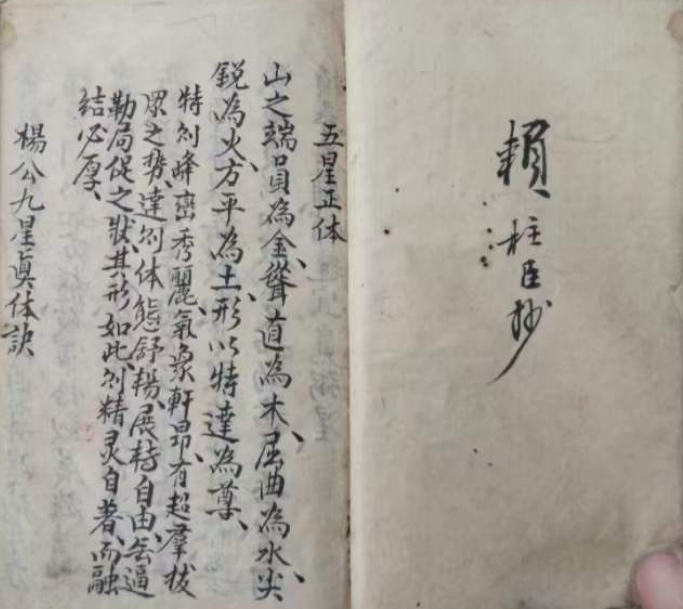 賴柱臣抄
五星正体
山之端員為金、聳直為木、屈曲為水、尖
鋭為火、方平為土、形以特達為尊、
特則峰巒秀麗、氣象軒昂、有超羣拔
眾之势、達則体態舒暢、展轉自由、無逼
勒局促之狀、其形如此、則精灵自著、而融
結必厚、
楊公九星眞体訣